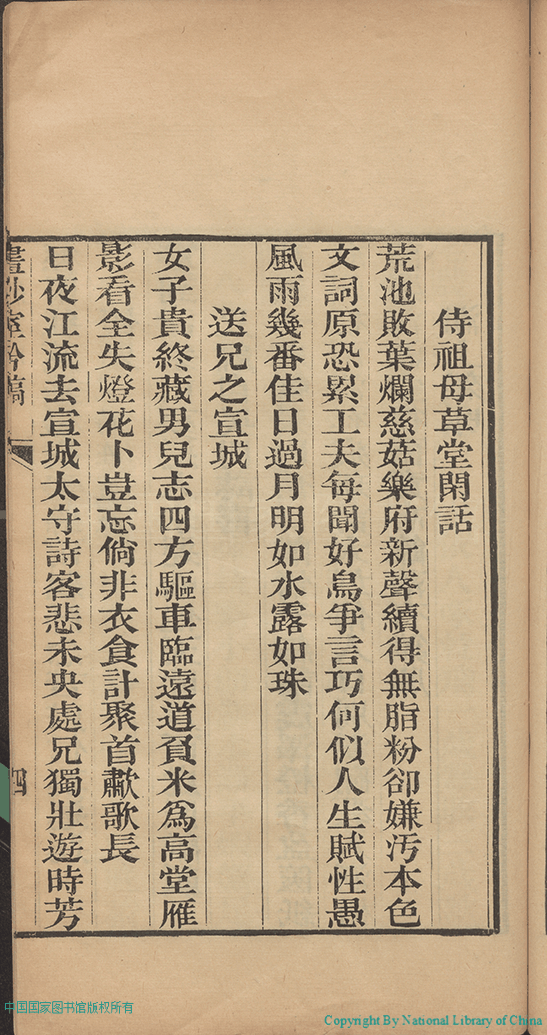 侍祖母草堂閑話
荒池敗葉爛慈菇樂府新聲續得無脂粉卻嫌汚本色
文詞原恐累工夫每聞好鳥爭言巧何似人生賦性愚
風雨幾番佳日過月明如水露如珠
送兄之宣城
女子貴終藏男兒志四方驅車臨遠道負米爲高堂雁
影看全失燈花卜豈忘倘非衣食計聚首歗歌長
日夜江流去宣城太守詩客悲未央處兄獨壯遊時芳
四
中国国家图书馆版权所有
Copyright By National Library of China